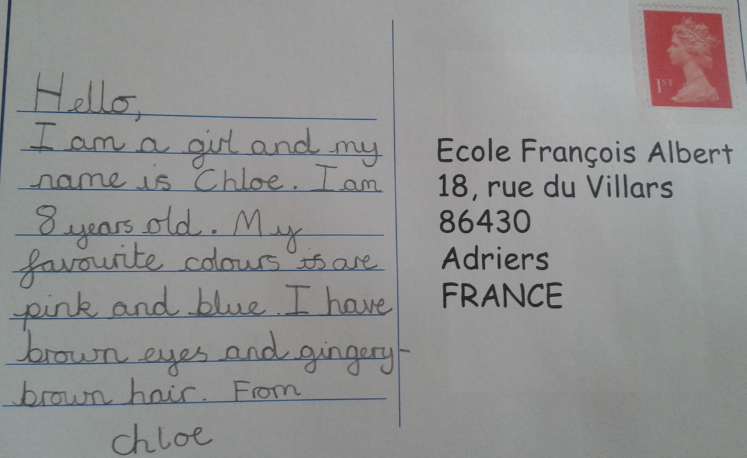 Hello,
I am a girl and my
name is Chloe. I am
8 years old. My
favourite colours is are
pink and blue. I have
brown eyes and gingery-
brown hair. From
Chloe
1ST
Ecole François Albert
18, rue du Villars
86430
Adriers
FRANCE